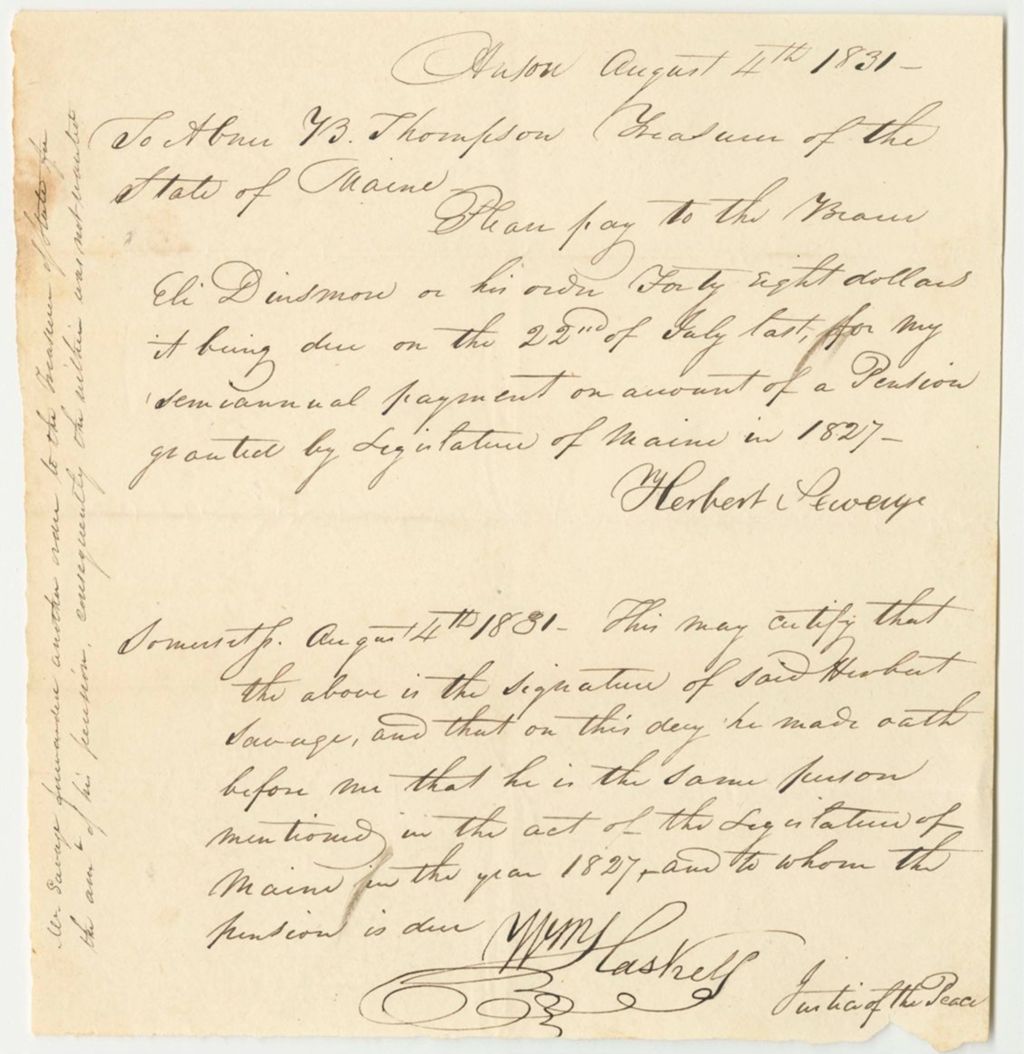 Anson August 4th 1831 –
To Abner B. Thompson Treasurer of the
State of Maine
Please pay to the Bearer
Eli Dinsmore or his order Forty eight dollars
it being due on the 22nd of July last, for my
semiannual payment on account of a Pension
granted by Legislature of Maine in 1827 –
Herbert
Somerset ss. August 4th 1831 – This may certify that
the above is the signature of said Herbert
Savage, and that on this day he made oath
before me that he is the same person
mentioned in the act of the Legislature of
Maine in the year 1827, and to whom the
pension is due
Wm Haskell
Justice of the Peace
Mr Savage another order to the Treasurer of State for
the amt of his pension, consequently the within was not wanted